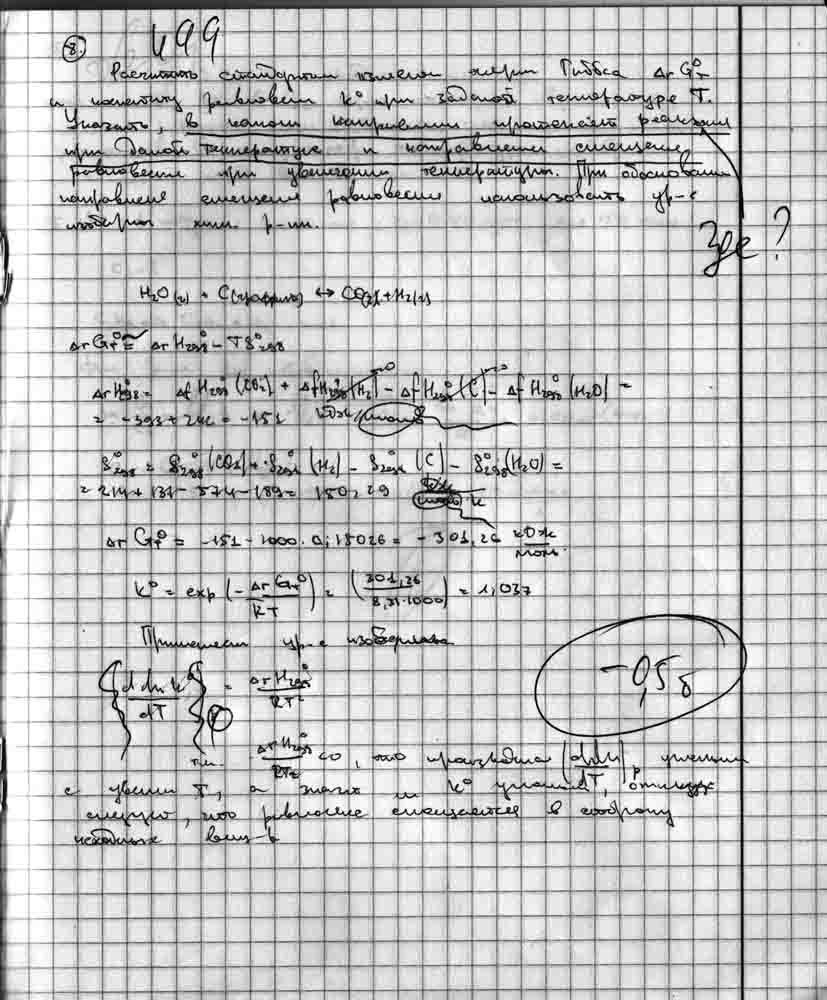 8. 499
Расчитать стандартн изменен энерги Гиббса ΔrG°т
и константу равновеси K° при заданой температуре T.
Указать, в каком направлении протекает реакция
при даной температуре и направлении смещение
равновесие при увеличении температуры. При обосновани
направление смещение равновесие использовать ур-е
изобары хим. р-ии.
Где?
H₂O(г) + C(графит) ↔ CO₂(г) + H₂(г)
ΔrG°т ≅ ΔrH°298 - TS°298
ΔrH°298 = ΔfH°298(CO₂) + ΔfH°298(H₂) - ΔfH°298(C) - ΔfH°298(H₂O) =
= -393 + 242 = -151 кДж/моль
S°298 = S°298(CO₂) + S°298(H₂) - S°298(C) - S°298(H₂O) =
= 214 + 131 - 5,74 - 189 = 150,29 Дж/моль·К
ΔrG°т = -151 - 1000 · 0,15026 = -301,26 кДж/моль
K° = exp(-ΔrG°т/RT) = (301,26/8,31·1000) = 1,037
Применяем ур-е изобары
{d ln K°/dT}p = ΔrH°298/RT²
-0,5 б
т.к. ΔrH°298/RT² <0, то производная (d ln K/dT)p уменьш
с увелич T, а значит и K° уменьш,
следует, что равновесие смещается в сторону
исходных вещ-в